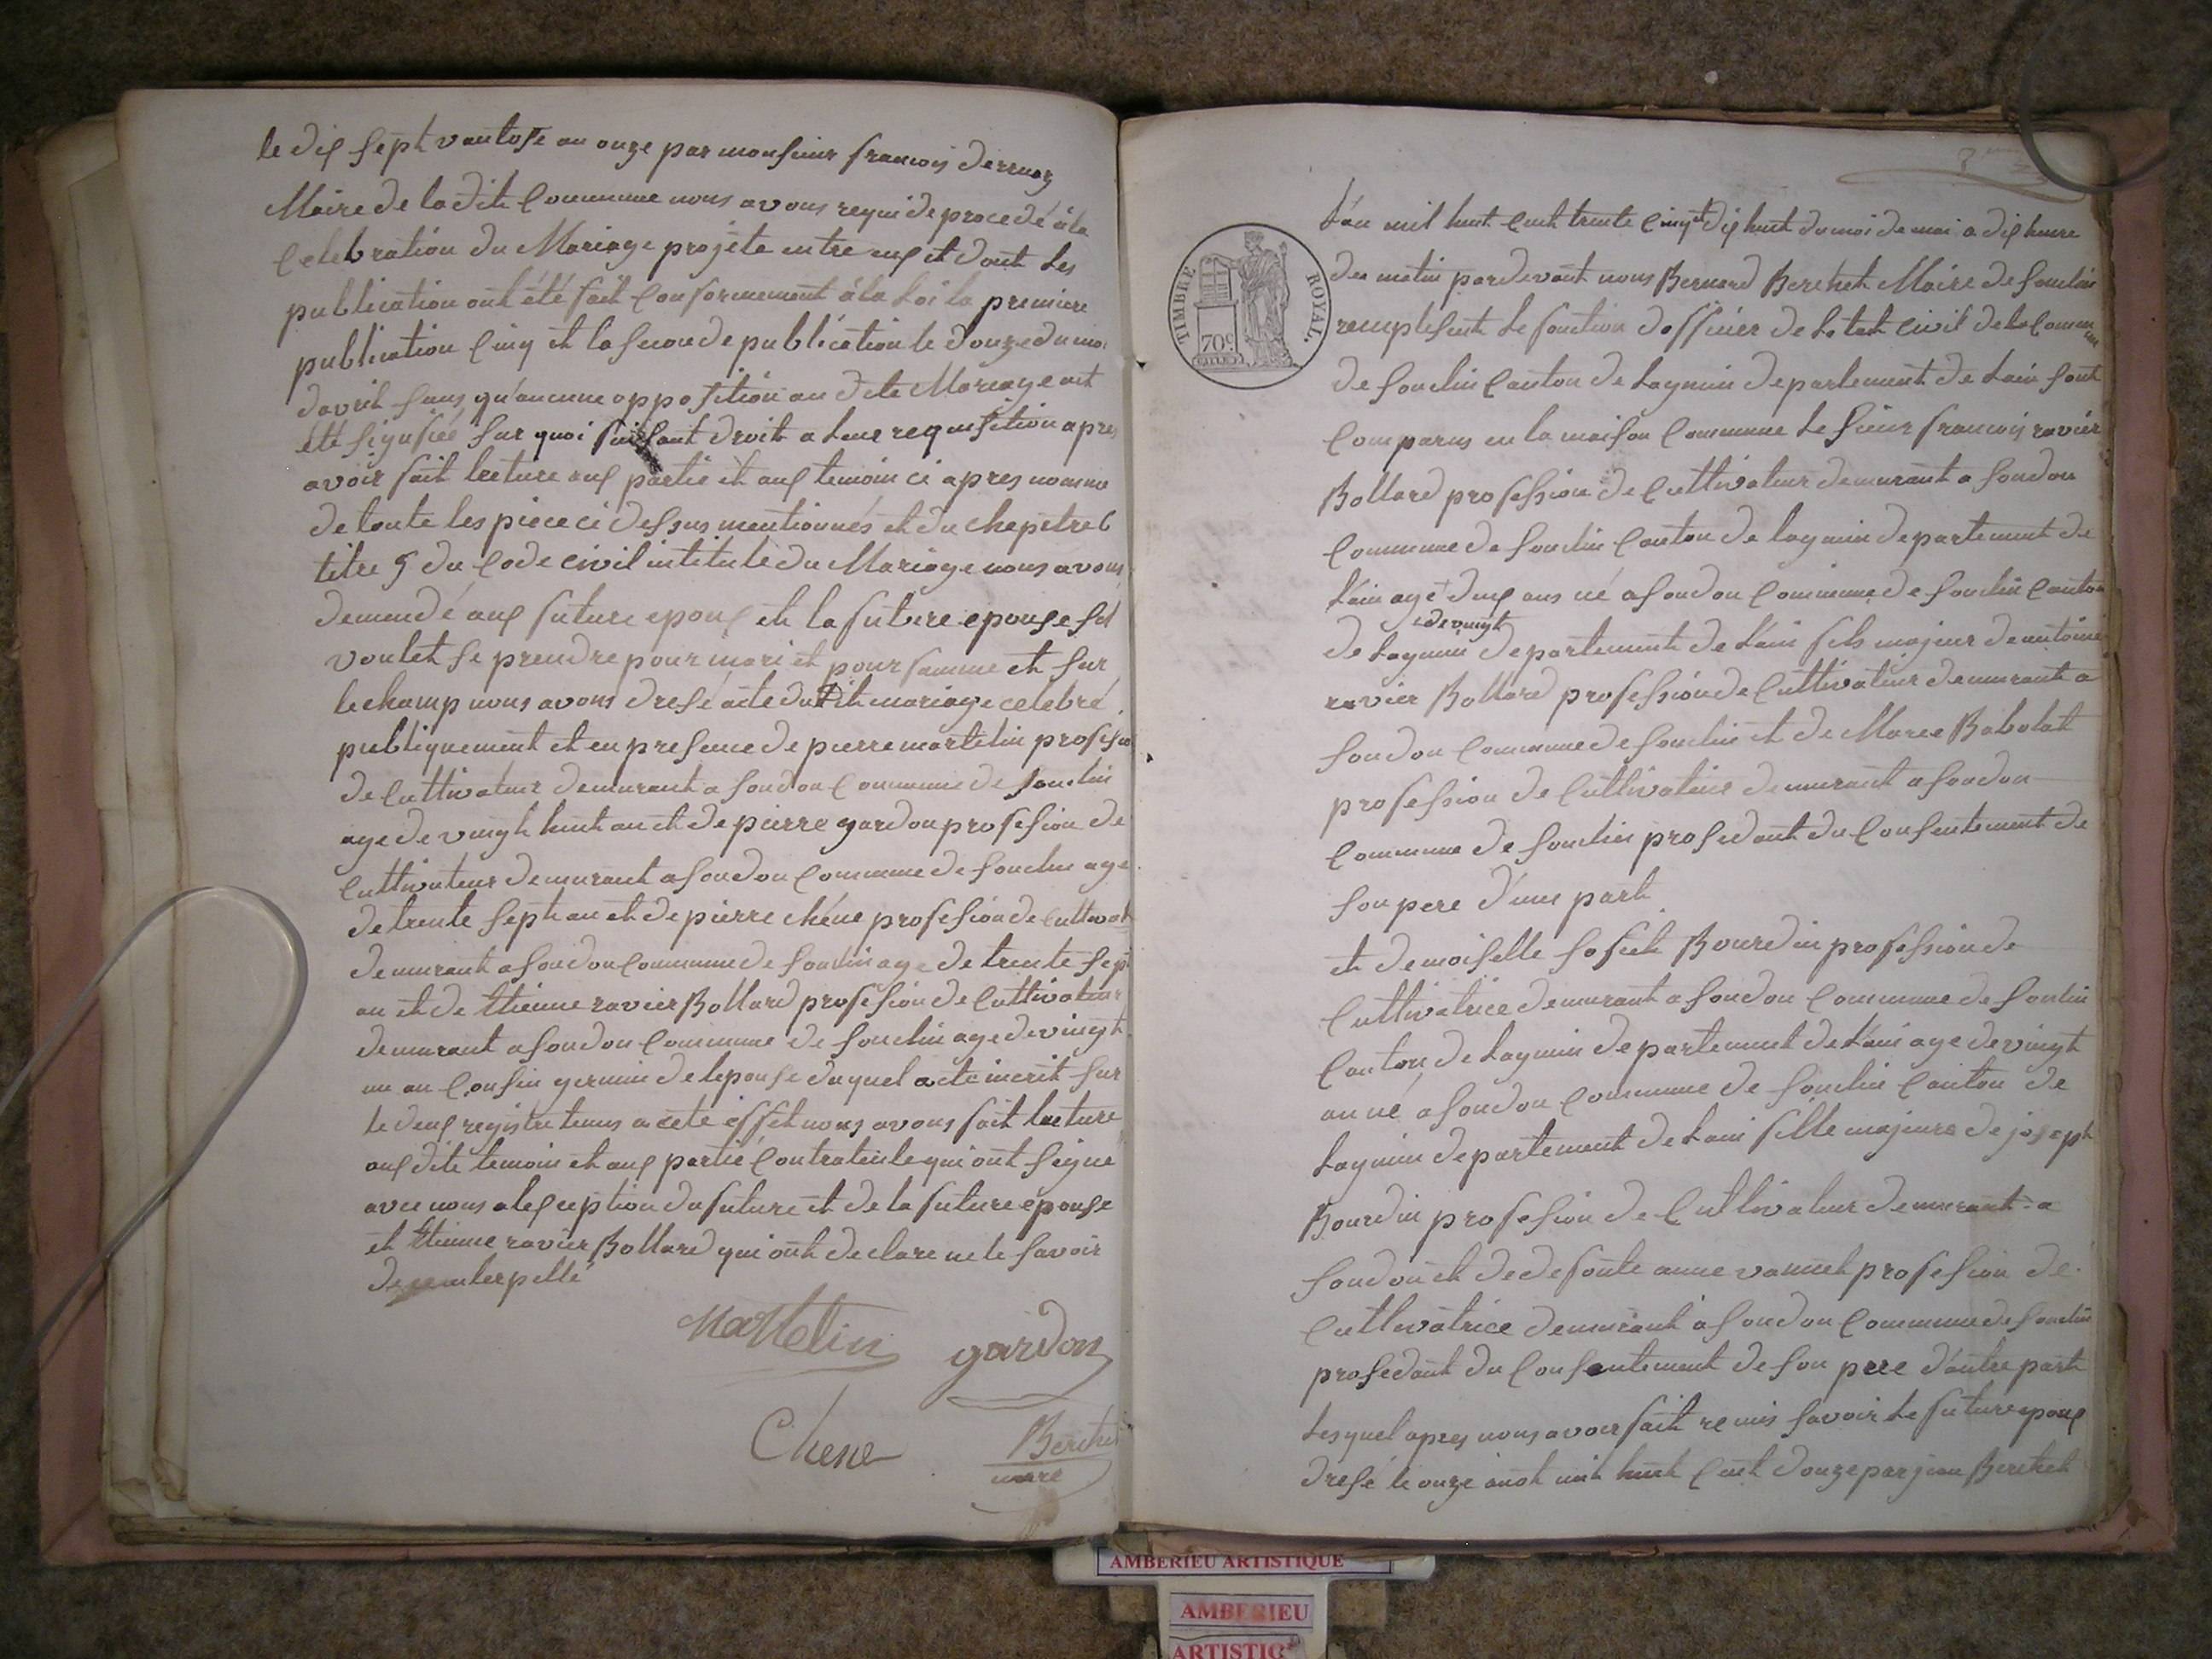 le dix sept vantose an onze par monsieur francois derruaz
Maire de la dite Commune nous avons requi de procedé à la
Celebration du Mariage projete entre eux et dont les
publication ont été fait Conformement à la Loi la premiere
publication Cinq et la seconde publication le douze du moi
davril sans qu'aucune opposition au dite Mariage ait
été signifiée sur quoi faissant droit a leur requisition apres
avoir fait lecture aux partie et aux temoin ci apres nomme
de toute les piece ci dessus mentionnés et du chapitre 6
titre 5 du Code civil intitulé du Mariage nous avons
demendé aux future epoux et la future epouse sil
voulet se prendre pour mari et pour famme et sur
le champ nous avons dressé acte du dit mariage celebré
publiquement et en presence de pierre martelin profession
de Cultivateur demurant a soudon Commune de souclin
age de vingt huit an et de pierre gardon profession de
Cultivateur demurant a soudon Commune de souclin age
de trente sept an et de pierre chéne profession de Cultivat
demurant a soudon Commune de souclin age de trente sept
an et de Etienne ravier Bollard profession de Cultivateur
demurant a soudon Commune de souclin age de vingt
un an Cousin germin de lepouse duquel acte inscrit sur
le deux registre tenus a cete effet nous avons fait lecture
aux dite temoin et aux partie Contractente qui ont signe
avec nous a lexception du future et de la future épouse
et Etienne ravier Bollard qui ont declare ne le savoir
de interpellé
Martelin gardon
Chene Berthet
mare
8eme
L'an mil huit Cent trente Cinq et dix huit du moi de mai a dix heure
deu matin pardevant nous Bernard Berthet Maire de souclin
remplissent le fonction dofficier de Letat Civil de la Commune
TIMBRE ROYAL.
70c
de souclin Canton de Lagnieu departement de Lain sont
Comparus en la maison Commune le sieur francois ravier
Bollard profession de Cultivateur demurant a soudon
Commune de souclin Canton de lagnieu departement de
Lain agé deux ans né a soudon Commune de souclin Canton
de vingt
de Lagnieu departement de Lain fils majeur de antoine
ravier Bollard profession de Cultivateur demurant a
soudon Commune de souclin et de Marie Babolat
profession de Cultivateur demurant a soudon
Commune de souclin prosedant du Consentement de
son pere d'une part
et demoiselle Bourdin profession de
Cultivatrice demurant a soudon Commune de souclin
Canton de Lagnieu departement de Lain age de vingt
an né a soudon Commune de souclin Canton de
Lagnieu departement de Lain fille majeure de joseph
Bourdin profession de Cultivateur demurant a
soudon et de defonte anne vannet profession de
Cultivatrice demurant à soudon Commune de souclin
prosedant du Consentement de son pere d'autre part
Lesquel apres nous avoir fait remis savoir Le future epoux
dressé le onze aout mil huit Cent douze par jean Berthet
AMBERIEU ARTISTIQUE
AMBERIEU
ARTISTIQ